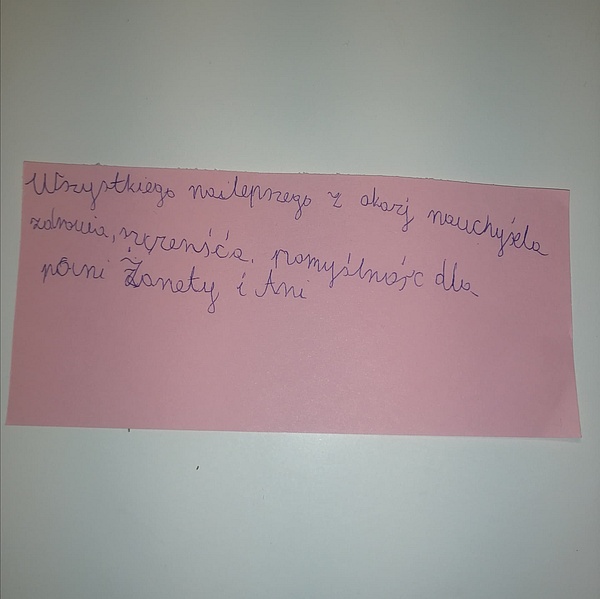 Wszystkiego nailepszego z okazj nauchyśela
zdrowia, szczenśća, pomyślnośc dla
pani Żanety i Ani